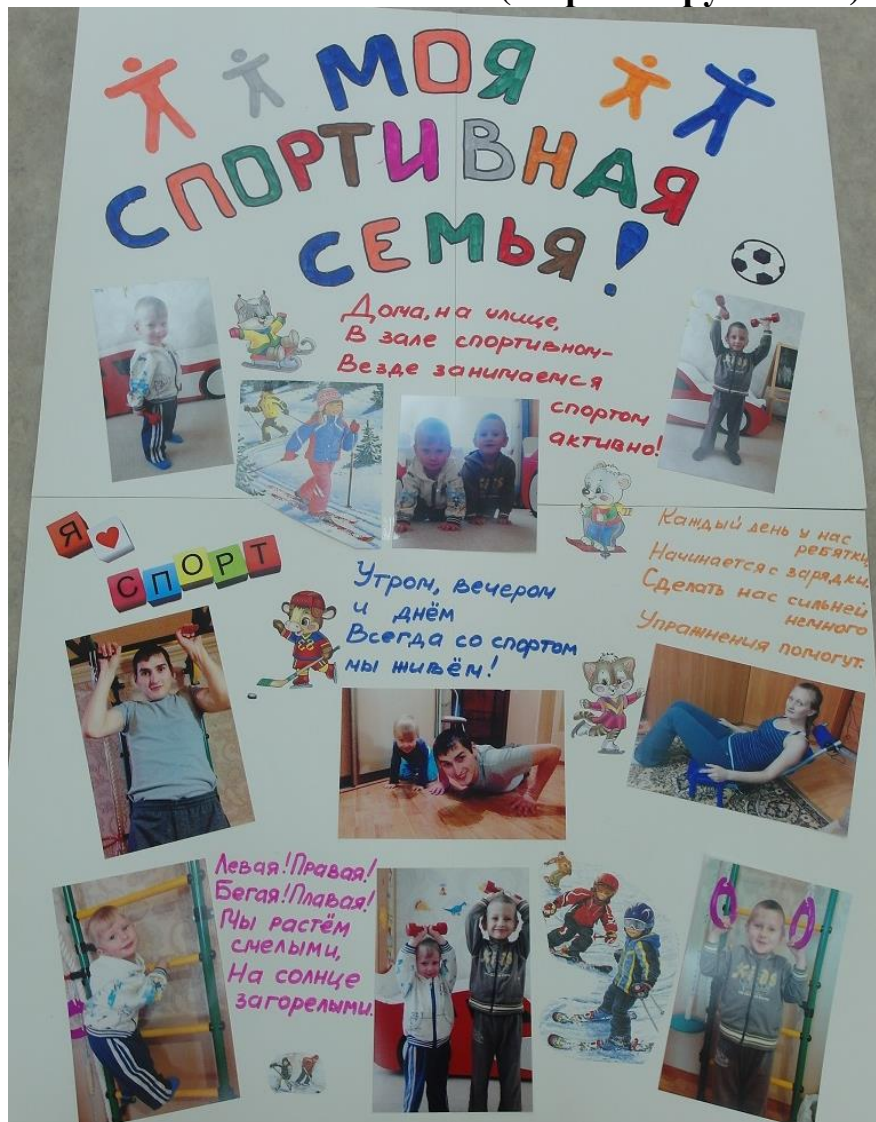 МОЯ
СПОРТИВНАЯ
СЕМЬЯ!
Дома, на улице,
В зале спортивном-
Везде занимаемся
спортом
активно!
Я
СПОРТ
Утром, вечером
и днём
Всегда со спортом
мы живём!
Каждый день у нас
ребятки,
Начинается с зарядки.
Сделать нас сильней
немного
Упражнения помогут.
Левая! Правая!
Бегая! Плавая!
Мы растём
смелыми,
На солнце
загорелыми.